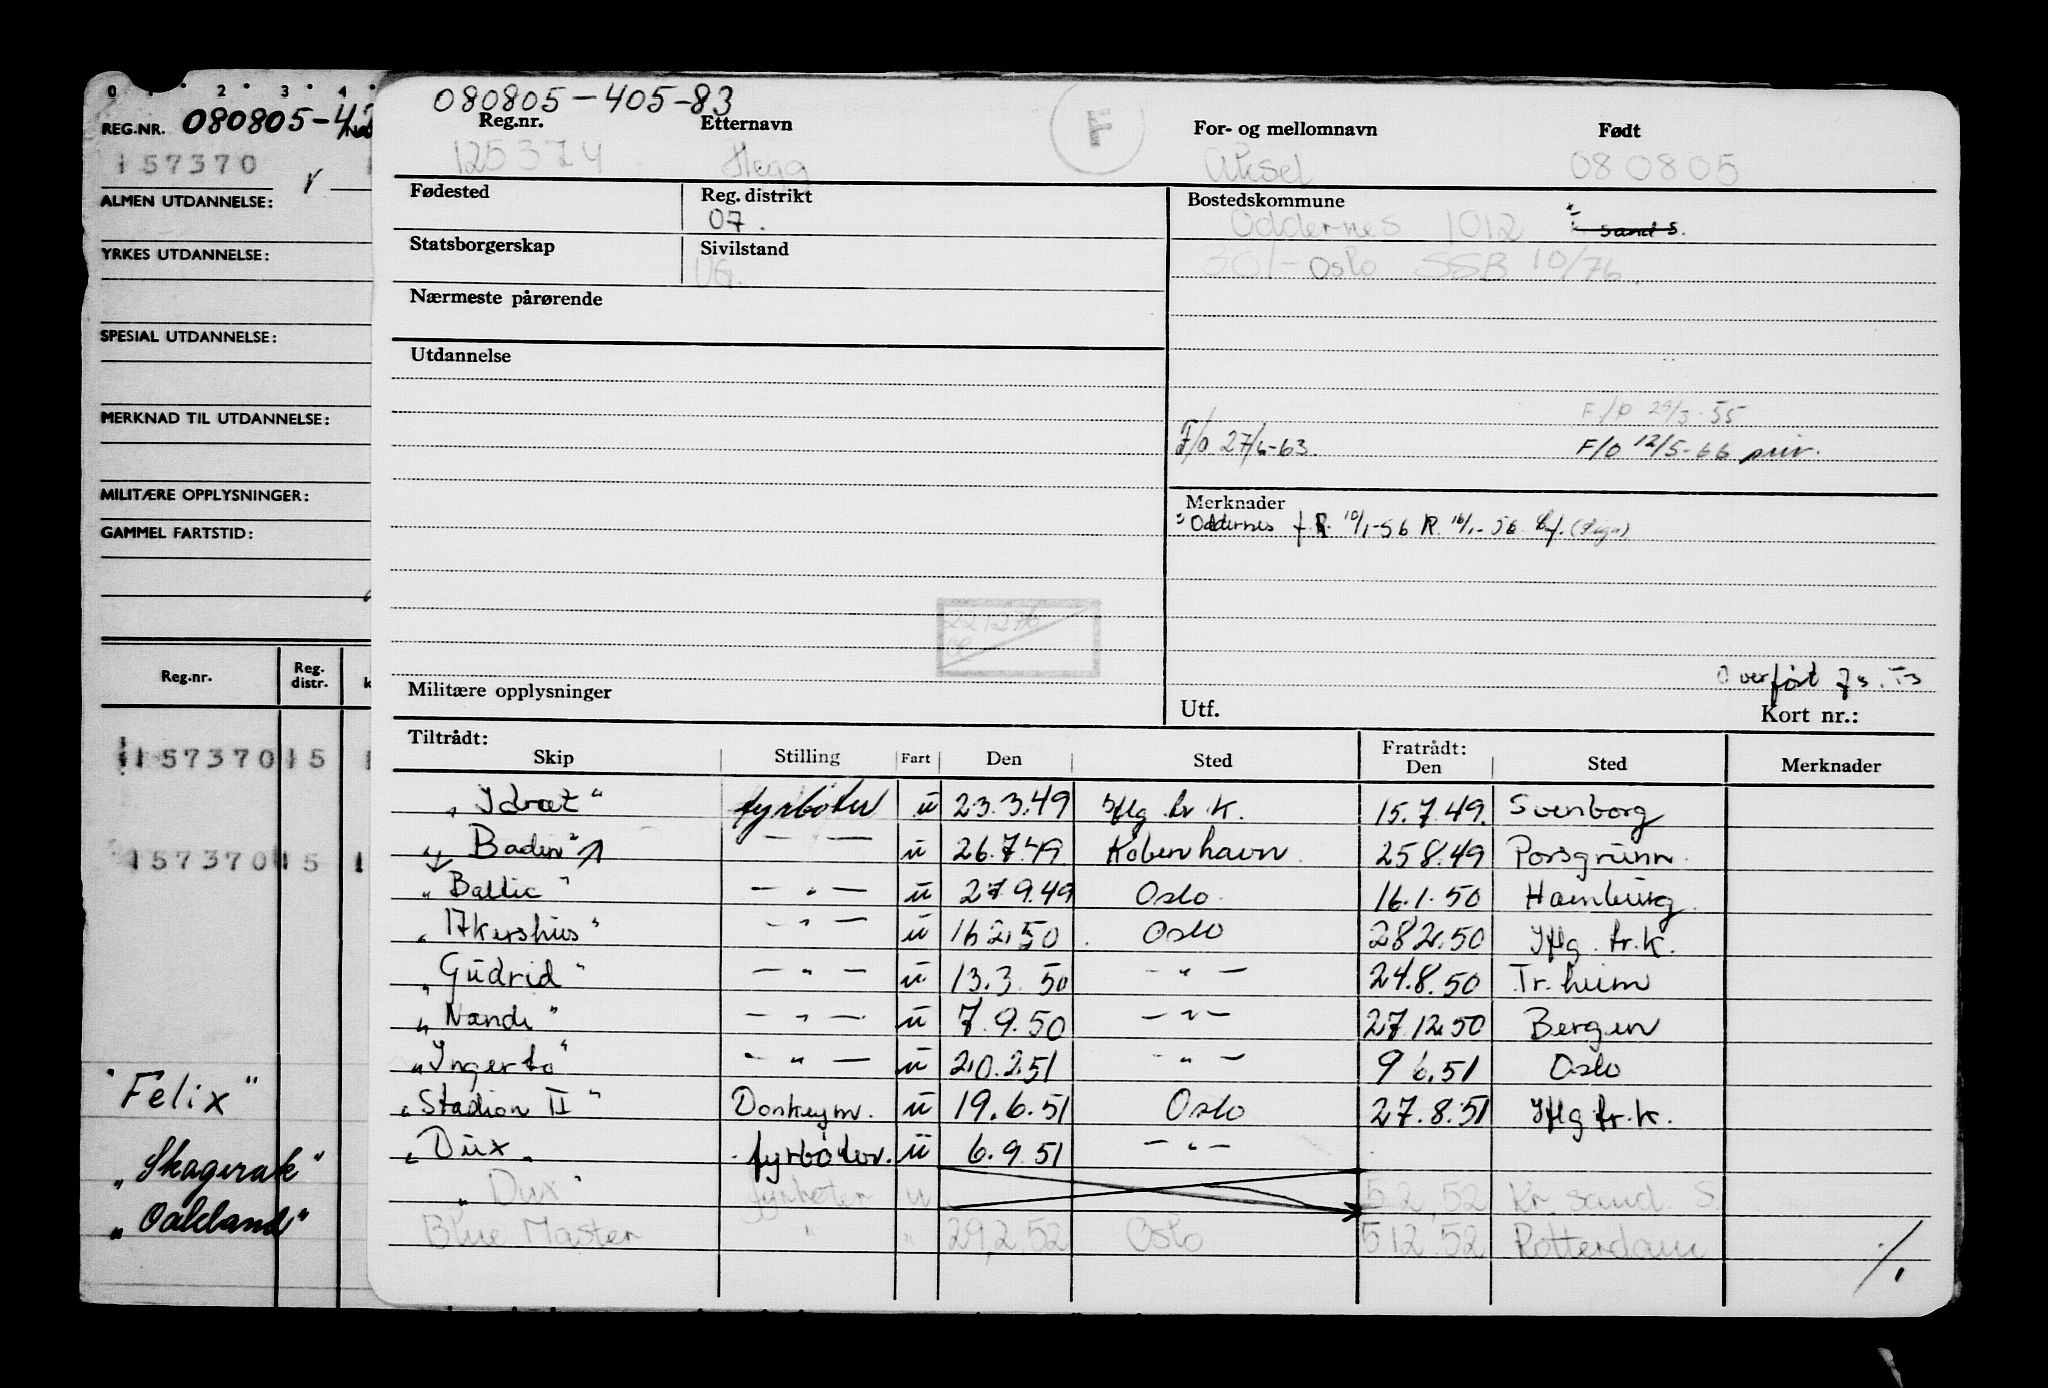 0 1 2 3 4
REG.NR. 080805-42
157370
ALMEN UTDANNELSE:
YRKES UTDANNELSE:
SPESIAL UTDANNELSE:
MERKNAD TIL UTDANNELSE:
MILITÆRE OPPLYSNINGER:
GAMMEL FARTSTID:
Reg.nr. Reg. distr.
157370 15
157370 15
"Felix"
"Skagerak"
"Oakland"
080805-405-83
Reg.nr. Etternavn F For- og mellomnavn Født
125374 Hegg Aksel 080805
Fødested Reg. distrikt Bostedskommune
07. Oddernes 1012 sand S.
Statsborgerskap Sivilstand
UG. 301- Oslo SSB 10/76
Nærmeste pårørende
Utdannelse
F/O 29/3-55
F/O 27/6-63. F/O 12/5-66 priv.
Merknader
Oddernes f R. 10/1-56 R. 16/1-56
Overført
Militære opplysninger Utf. Kort nr.:
Tiltrådt: Fratrådt:
Skip Stilling Fart Den Sted Den Sted Merknader
"Idræt" fyrbøter u 23.3.49 Iflg fr.K. 15.7.49. Svenborg
"Baden" — — u 26.7.49 København 25 8.49 Porsgrunn.
"Baltic" — " — u 27.9.49 Oslo 16.1.50 Hamburg.
"Akershus" — " — u 16 2.50 Oslo 28 2.50 Iflg. fr.K.
"Gudrid" — " — u 13.3 50 — " — 24.8.50 Tr.heim
"Nandi" — " — u 7.9.50 — " — 27 12.50 Bergen
"Ingerto" — " — u 20.2.51 — " — 9 6.51 Oslo
"Stadion II" Donkeym. u 19.6.51 Oslo 27.8.51 Iflg fr.K.
"Dux" fyrbøter. u 6.9.51 — " —
"Dux" fyrbøter u 5 2.52 Kr.sand. S
Blue Master " " 29.2 52 Oslo 5 12.52 Rotterdam